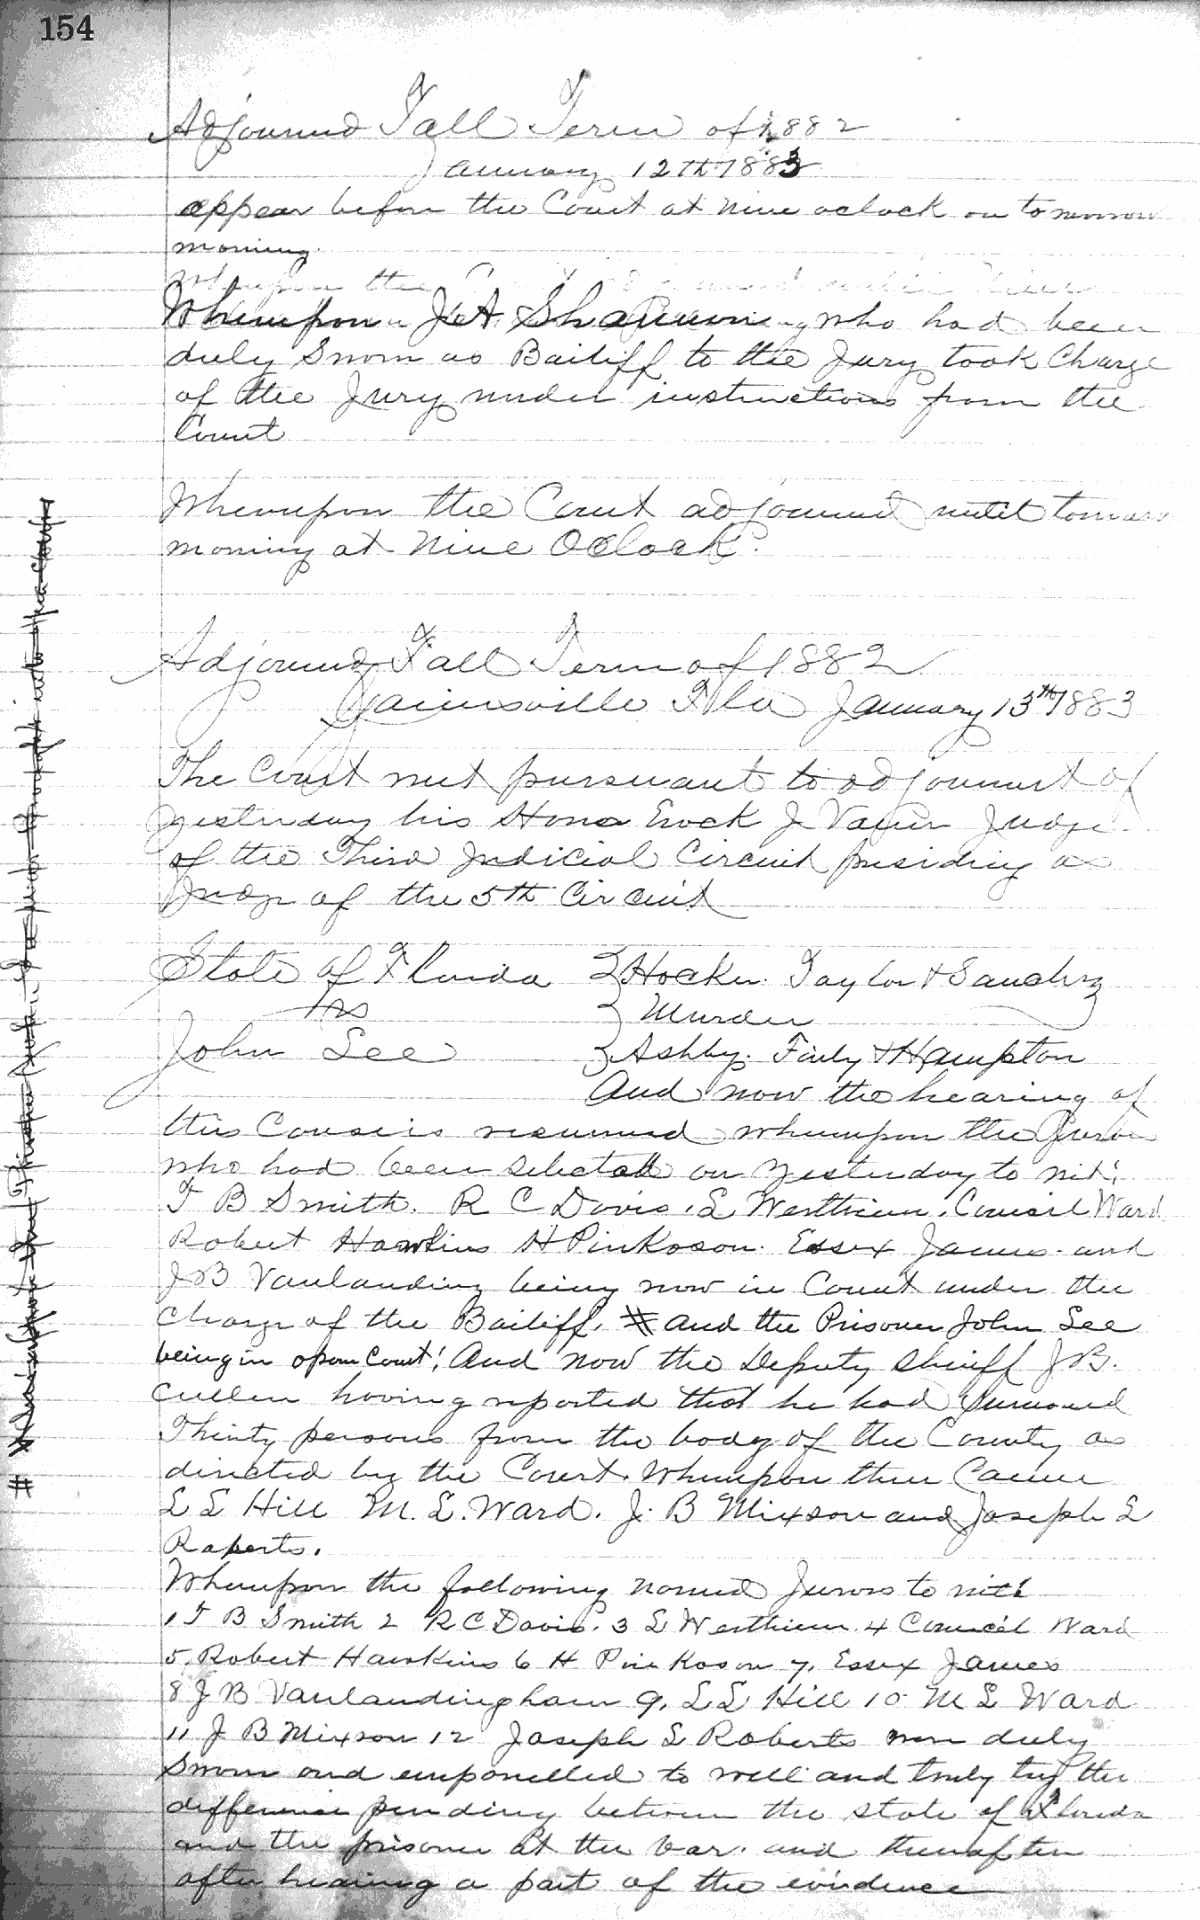 154
Adjourned Fall Term of 1882
January 12th 1883
appear before the Court at nine oclock on tomorrow
morning.
Whereupon J A Shannon who had been
duly Sworn as Bailiff to the Jury took Charge
of the Jury under instructions from the
Court
Whereupon the Court adjourned until tomorrow
morning at Nine Oclock.
Adjourned Fall Term of 1882
Gainesville Fla January 13th 1883
The Court met pursuant to adjournmt of
yesterday his Honor Enock J Vann Judge
of the Third Judicial Circuit presiding as
Judge of the 5th Circuit
State of Florida Hocker. Taylor & Sanchez
vs Murder
John Lee Ashby. Finly & Hampton
And now the hearing of
this Cause is resumed whereupon the Jurors
who had been Selected on yesterday to wit:
T B Smith. R C Davis. L Werthiem. Council Ward
Robert Hawkins H Pinkoson. Essex James. and
J B Vanlanding being now in Court under the
Charge of the Bailiff, # and the Prisoner John Lee
being in open Court! And now the Deputy Sheriff J B.
Cullen having reported that he had Sumoned
Thirty persons from the body of the County as
directed by the Court. Whereupon then Came
L L Hill M. L. Ward. J. B Mixson and Joseph L
Raperts.
Whereupon the following named Jurors to wit
1 T B Smith 2 R C Davis. 3 L Werthiem. 4 Council Ward
5. Robert Hawkins 6 H Pinkoson 7. Essex James
8 J B Vanlandingham 9. L L Hill 10 M L Ward
11 J B Mixson 12 Joseph L Roberts were duly
Sworn and empanelled to well and truly try the
difference pending between the state of Florida
and the prisoner at the bar. and thereafter
after hearing a part of the evidence